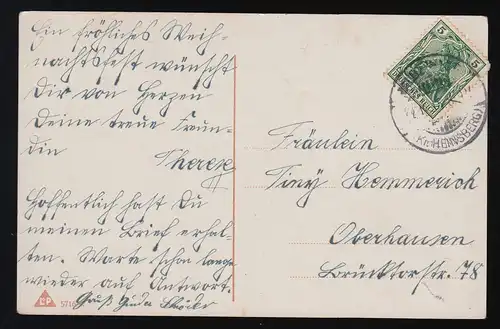 Ein fröhliches Weih-
nachtsfest wünscht
Dir von Herzen
Deine treue Freun-
din
Therese
Hoffentlich hast Du
meinen Brief erhal-
ten. Warte schon lange
wieder auf Antwort.
Gruß
5
5
(KR. HEINSBERG)
Fräulein
Tiny Hemmerich
Oberhausen
Brücktorstr. 78